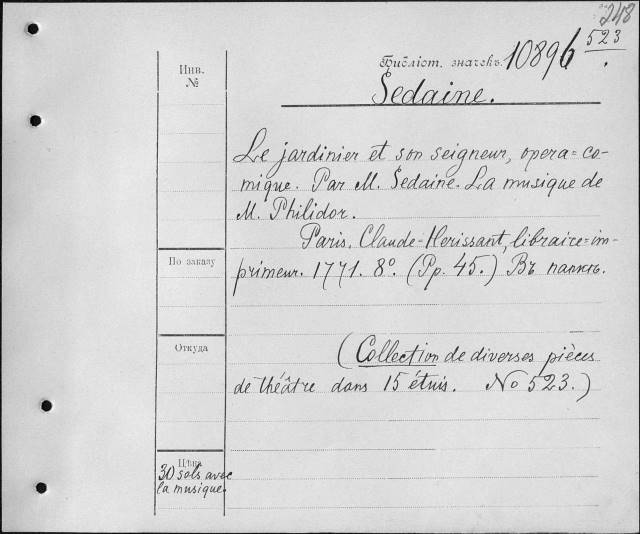 248
Библіот. значекъ. 10896 523.
Инв.
№
Sedaine.
Le jardinier et son seigneur, opera=co-
mique. Par M. Sedaine. La musique de
M. Philidor.
Paris, Claude=Herissant, libraire=im-
primeur. 1771. 8º. (Pp. 45.) Въ папкѣ.
По заказу
Откуда
(Collection de diverses pièces
de théâtre dans 15 étuis. No 523.)
Цѣна
30 sols avec
la musique.